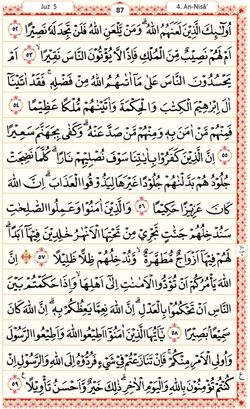 Juz 5 87 4. An-Nisā'
اُولٰٓئِكَ الَّذِيْنَ لَعَنَهُمُ اللّٰهُ ۗ وَمَنْ يَّلْعَنِ اللّٰهُ فَلَنْ تَجِدَ لَهٗ نَصِيْرًا ۝٥٢
اَمْ لَهُمْ نَصِيْبٌ مِّنَ الْمُلْكِ فَاِذًا لَّا يُؤْتُوْنَ النَّاسَ نَقِيْرًا ۝٥٣ اَمْ
يَحْسُدُوْنَ النَّاسَ عَلٰى مَآ اٰتٰىهُمُ اللّٰهُ مِنْ فَضْلِهٖ ۚ فَقَدْ اٰتَيْنَآ
اٰلَ اِبْرٰهِيْمَ الْكِتٰبَ وَالْحِكْمَةَ وَاٰتَيْنٰهُمْ مُّلْكًا عَظِيْمًا ۝٥٤
فَمِنْهُمْ مَّنْ اٰمَنَ بِهٖ وَمِنْهُمْ مَّنْ صَدَّ عَنْهُ ۗ وَكَفٰى بِجَهَنَّمَ سَعِيْرًا
۝٥٥ اِنَّ الَّذِيْنَ كَفَرُوْا بِاٰيٰتِنَا سَوْفَ نُصْلِيْهِمْ نَارًا ۗ كُلَّمَا نَضِجَتْ
جُلُوْدُهُمْ بَدَّلْنٰهُمْ جُلُوْدًا غَيْرَهَا لِيَذُوْقُوا الْعَذَابَ ۗ اِنَّ اللّٰهَ
كَانَ عَزِيْزًا حَكِيْمًا ۝٥٦ وَالَّذِيْنَ اٰمَنُوْا وَعَمِلُوا الصّٰلِحٰتِ
سَنُدْخِلُهُمْ جَنّٰتٍ تَجْرِيْ مِنْ تَحْتِهَا الْاَنْهٰرُ خٰلِدِيْنَ فِيْهَآ اَبَدًا ۗ
لَهُمْ فِيْهَآ اَزْوَاجٌ مُّطَهَّرَةٌ ۙ وَّنُدْخِلُهُمْ ظِلًّا ظَلِيْلًا ۝٥٧ اِنَّ
اللّٰهَ يَأْمُرُكُمْ اَنْ تُؤَدُّوا الْاَمٰنٰتِ اِلٰٓى اَهْلِهَا ۙ وَاِذَا حَكَمْتُمْ بَيْنَ
النَّاسِ اَنْ تَحْكُمُوْا بِالْعَدْلِ ۗ اِنَّ اللّٰهَ نِعِمَّا يَعِظُكُمْ بِهٖ ۗ اِنَّ اللّٰهَ كَانَ
سَمِيْعًا ۢ بَصِيْرًا ۝٥٨ يٰٓاَيُّهَا الَّذِيْنَ اٰمَنُوْٓا اَطِيْعُوا اللّٰهَ وَاَطِيْعُوا الرَّسُوْلَ
وَاُولِى الْاَمْرِ مِنْكُمْ ۚ فَاِنْ تَنَازَعْتُمْ فِيْ شَيْءٍ فَرُدُّوْهُ اِلَى اللّٰهِ وَالرَّسُوْلِ اِنْ
كُنْتُمْ تُؤْمِنُوْنَ بِاللّٰهِ وَالْيَوْمِ الْاٰخِرِ ۗ ذٰلِكَ خَيْرٌ وَّاَحْسَنُ تَأْوِيْلًا ۝٥٩